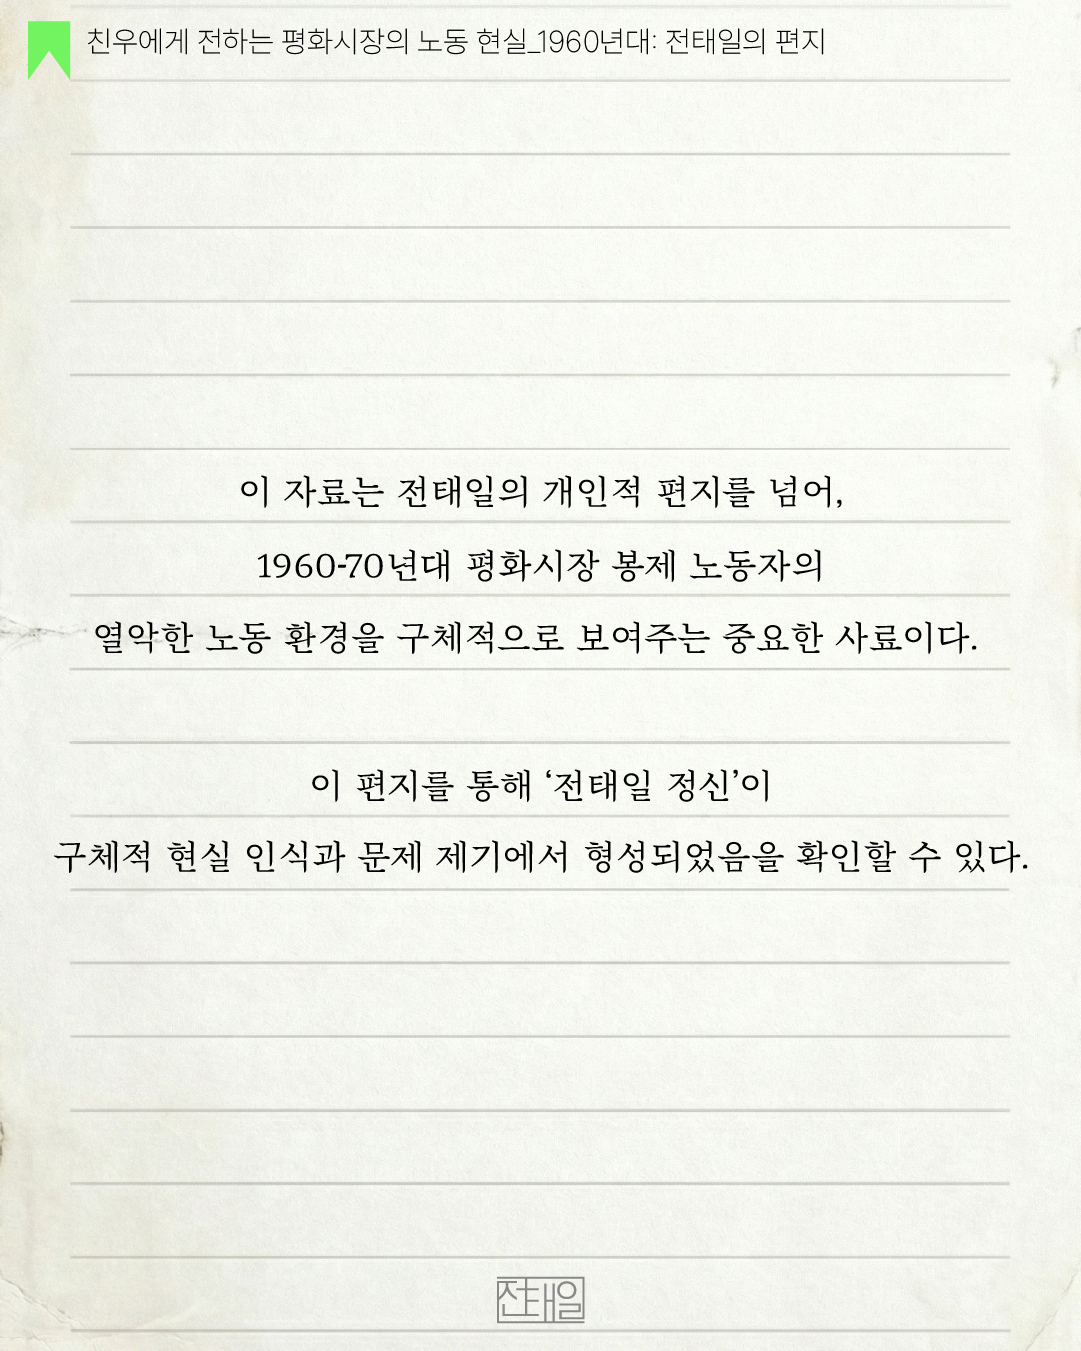 친우에게 전하는 평화시장의 노동 현실_1960년대: 전태일의 편지
이 자료는 전태일의 개인적 편지를 넘어,
1960-70년대 평화시장 봉제 노동자의
열악한 노동 환경을 구체적으로 보여주는 중요한 사료이다.
이 편지를 통해 ‘전태일 정신’이
구체적 현실 인식과 문제 제기에서 형성되었음을 확인할 수 있다.
전태일